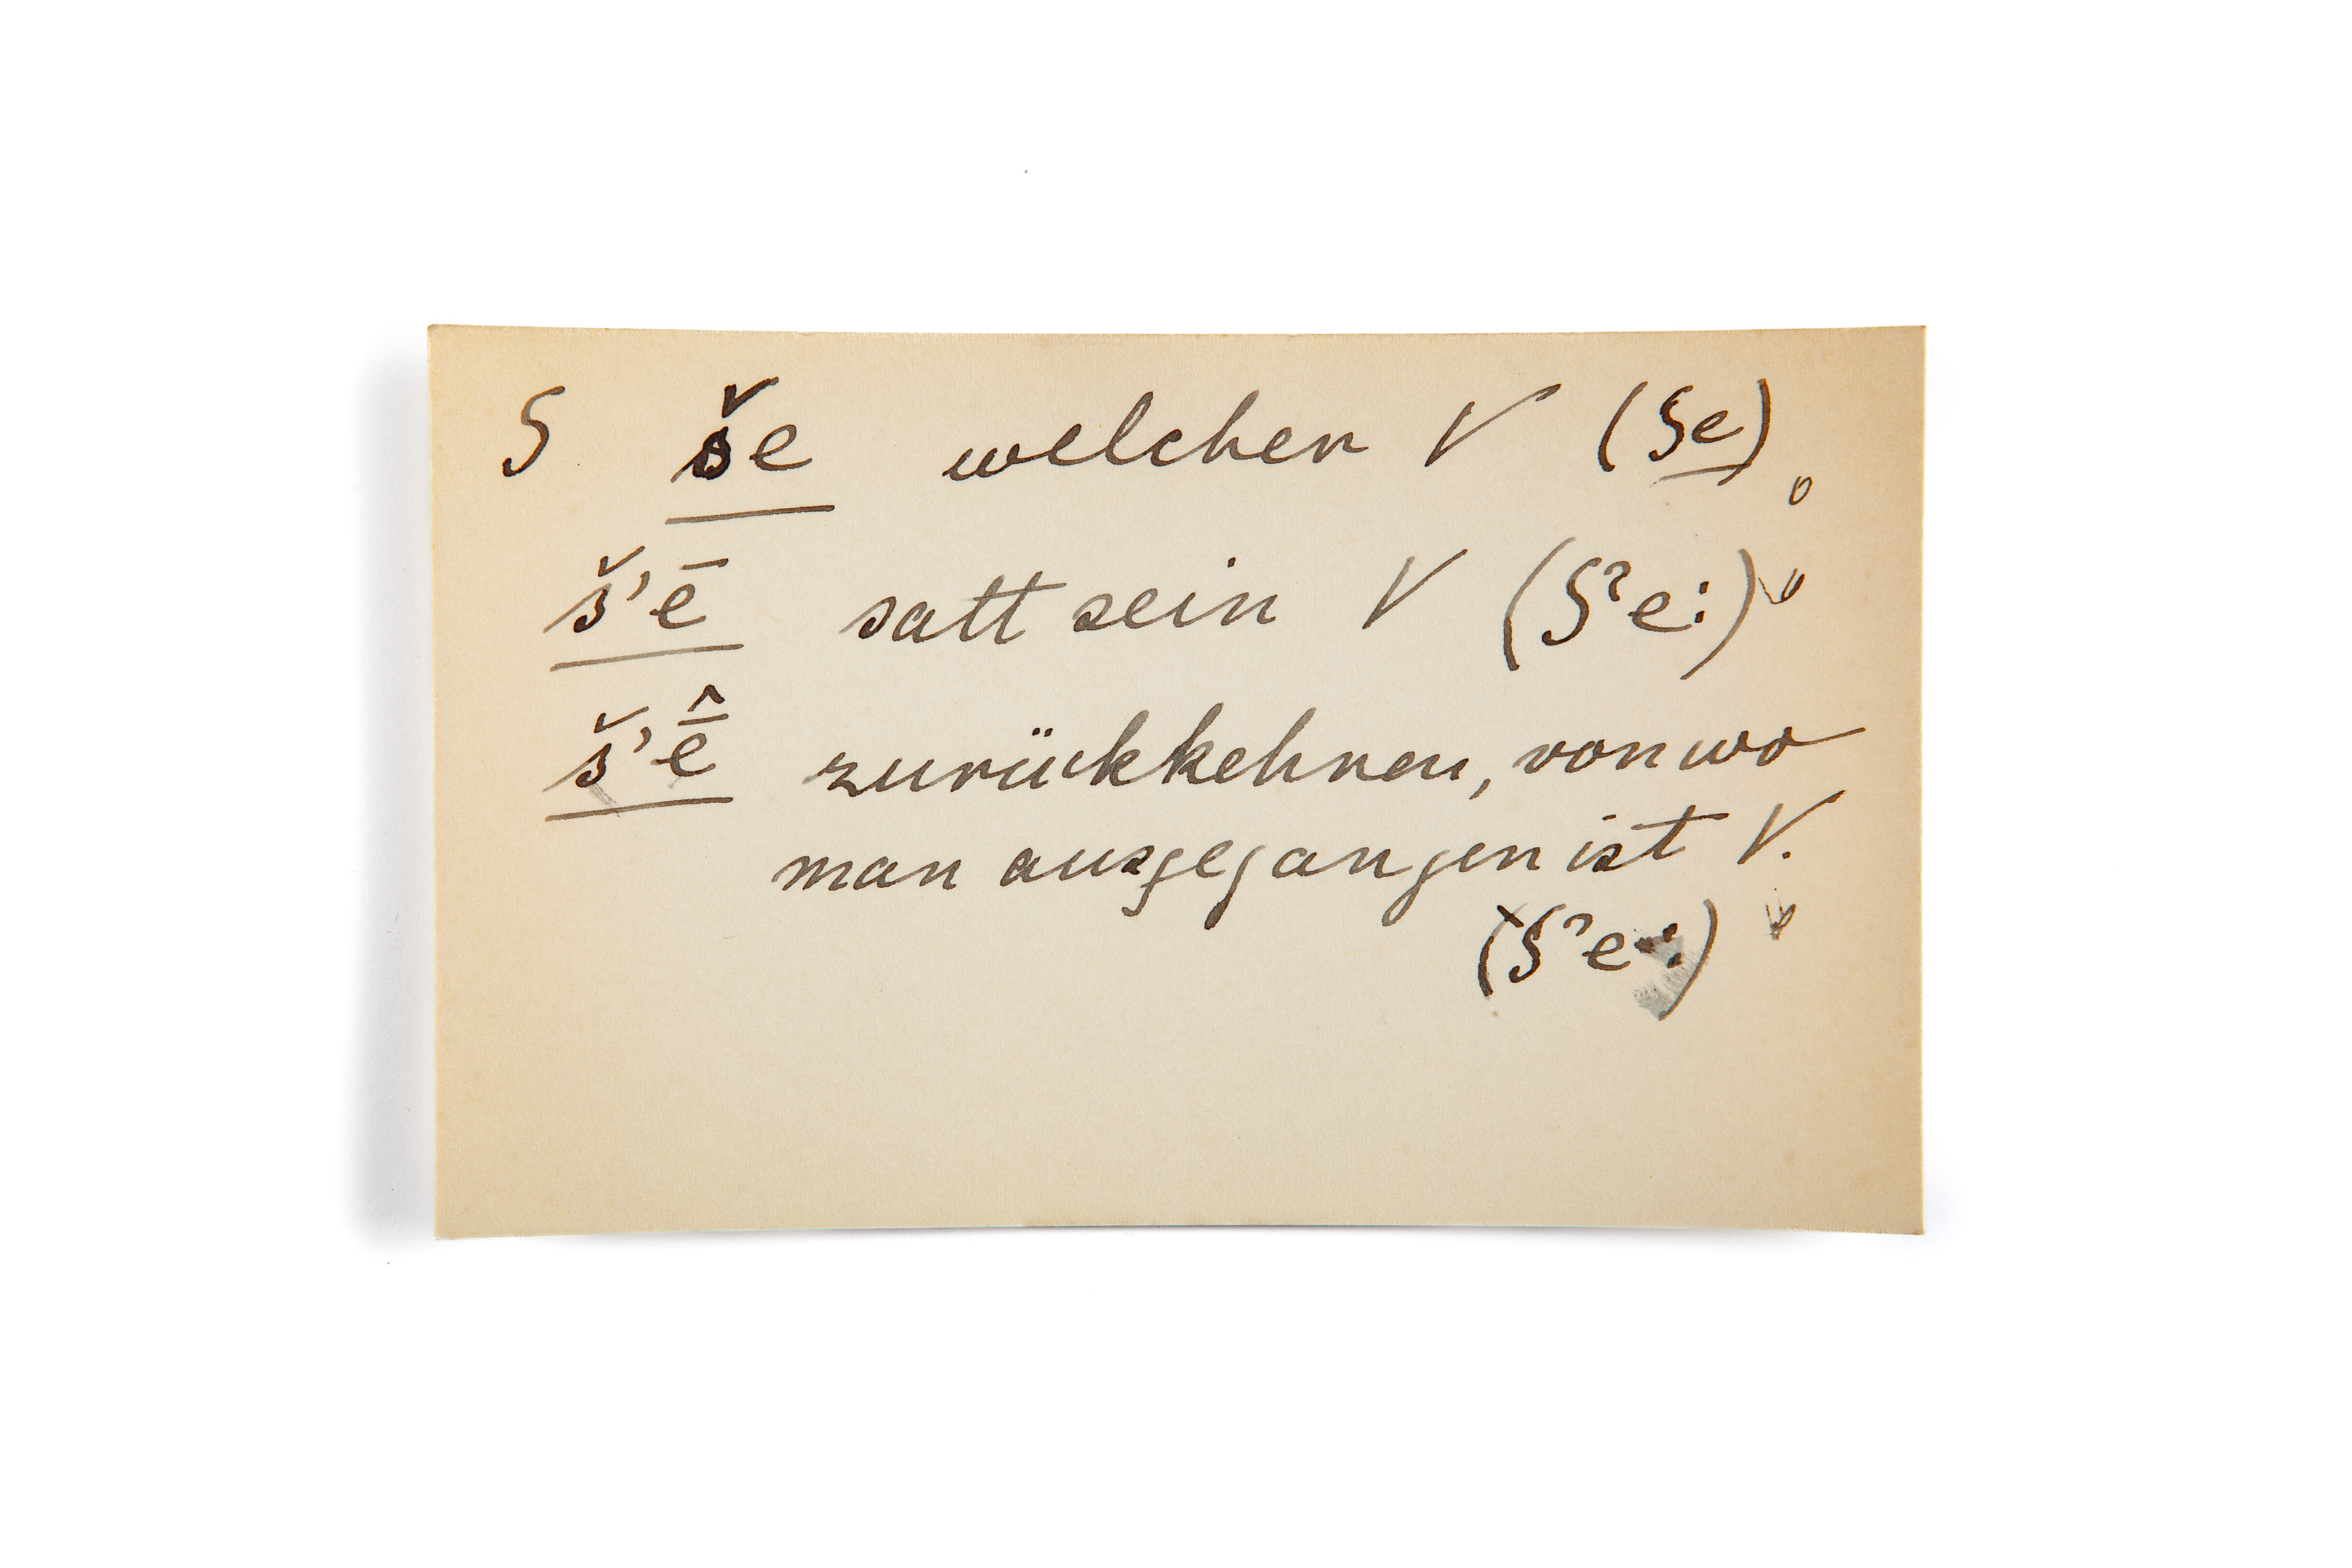 ʃ še welcher V (ʃe)
š'ē satt sein V (ʃˀe:)
š'ē̂ zurückkehren, von wo
man ausgegangen ist V.
(ʃˀe·:)